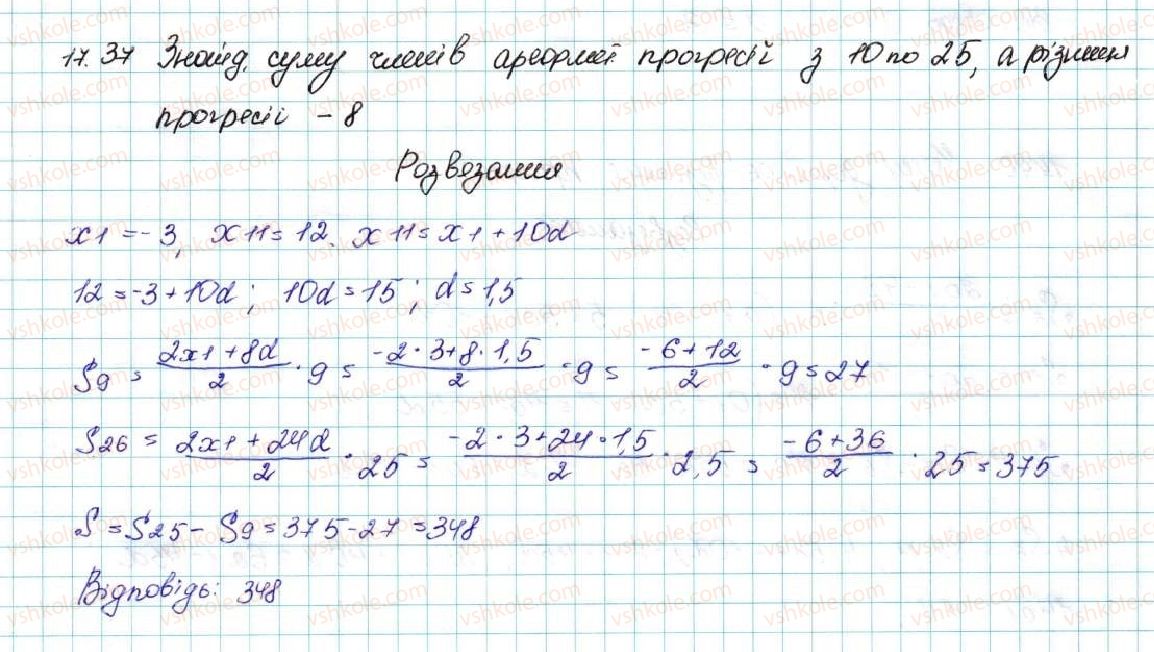 17.37 Знайд. суму членів арефмет. прогресії з 10 по 25, а різниця
прогресії - 8
Розвязання
x1 = -3, x11 = 12. x11 = x1 + 10d
12 = -3 + 10d ; 10d = 15 ; d = 1,5
S9 = (2x1 + 8d)/2 · 9 = (-2 · 3 + 8 · 1,5)/2 · 9 = (-6 + 12)/2 · 9 = 27
S26 = (2x1 + 24d)/2 · 25 = (-2 · 3 + 24 · 1,5)/2 · 2,5 = (-6 + 36)/2 · 25 = 375
S = S25 - S9 = 375 - 27 = 348
Відповідь: 348